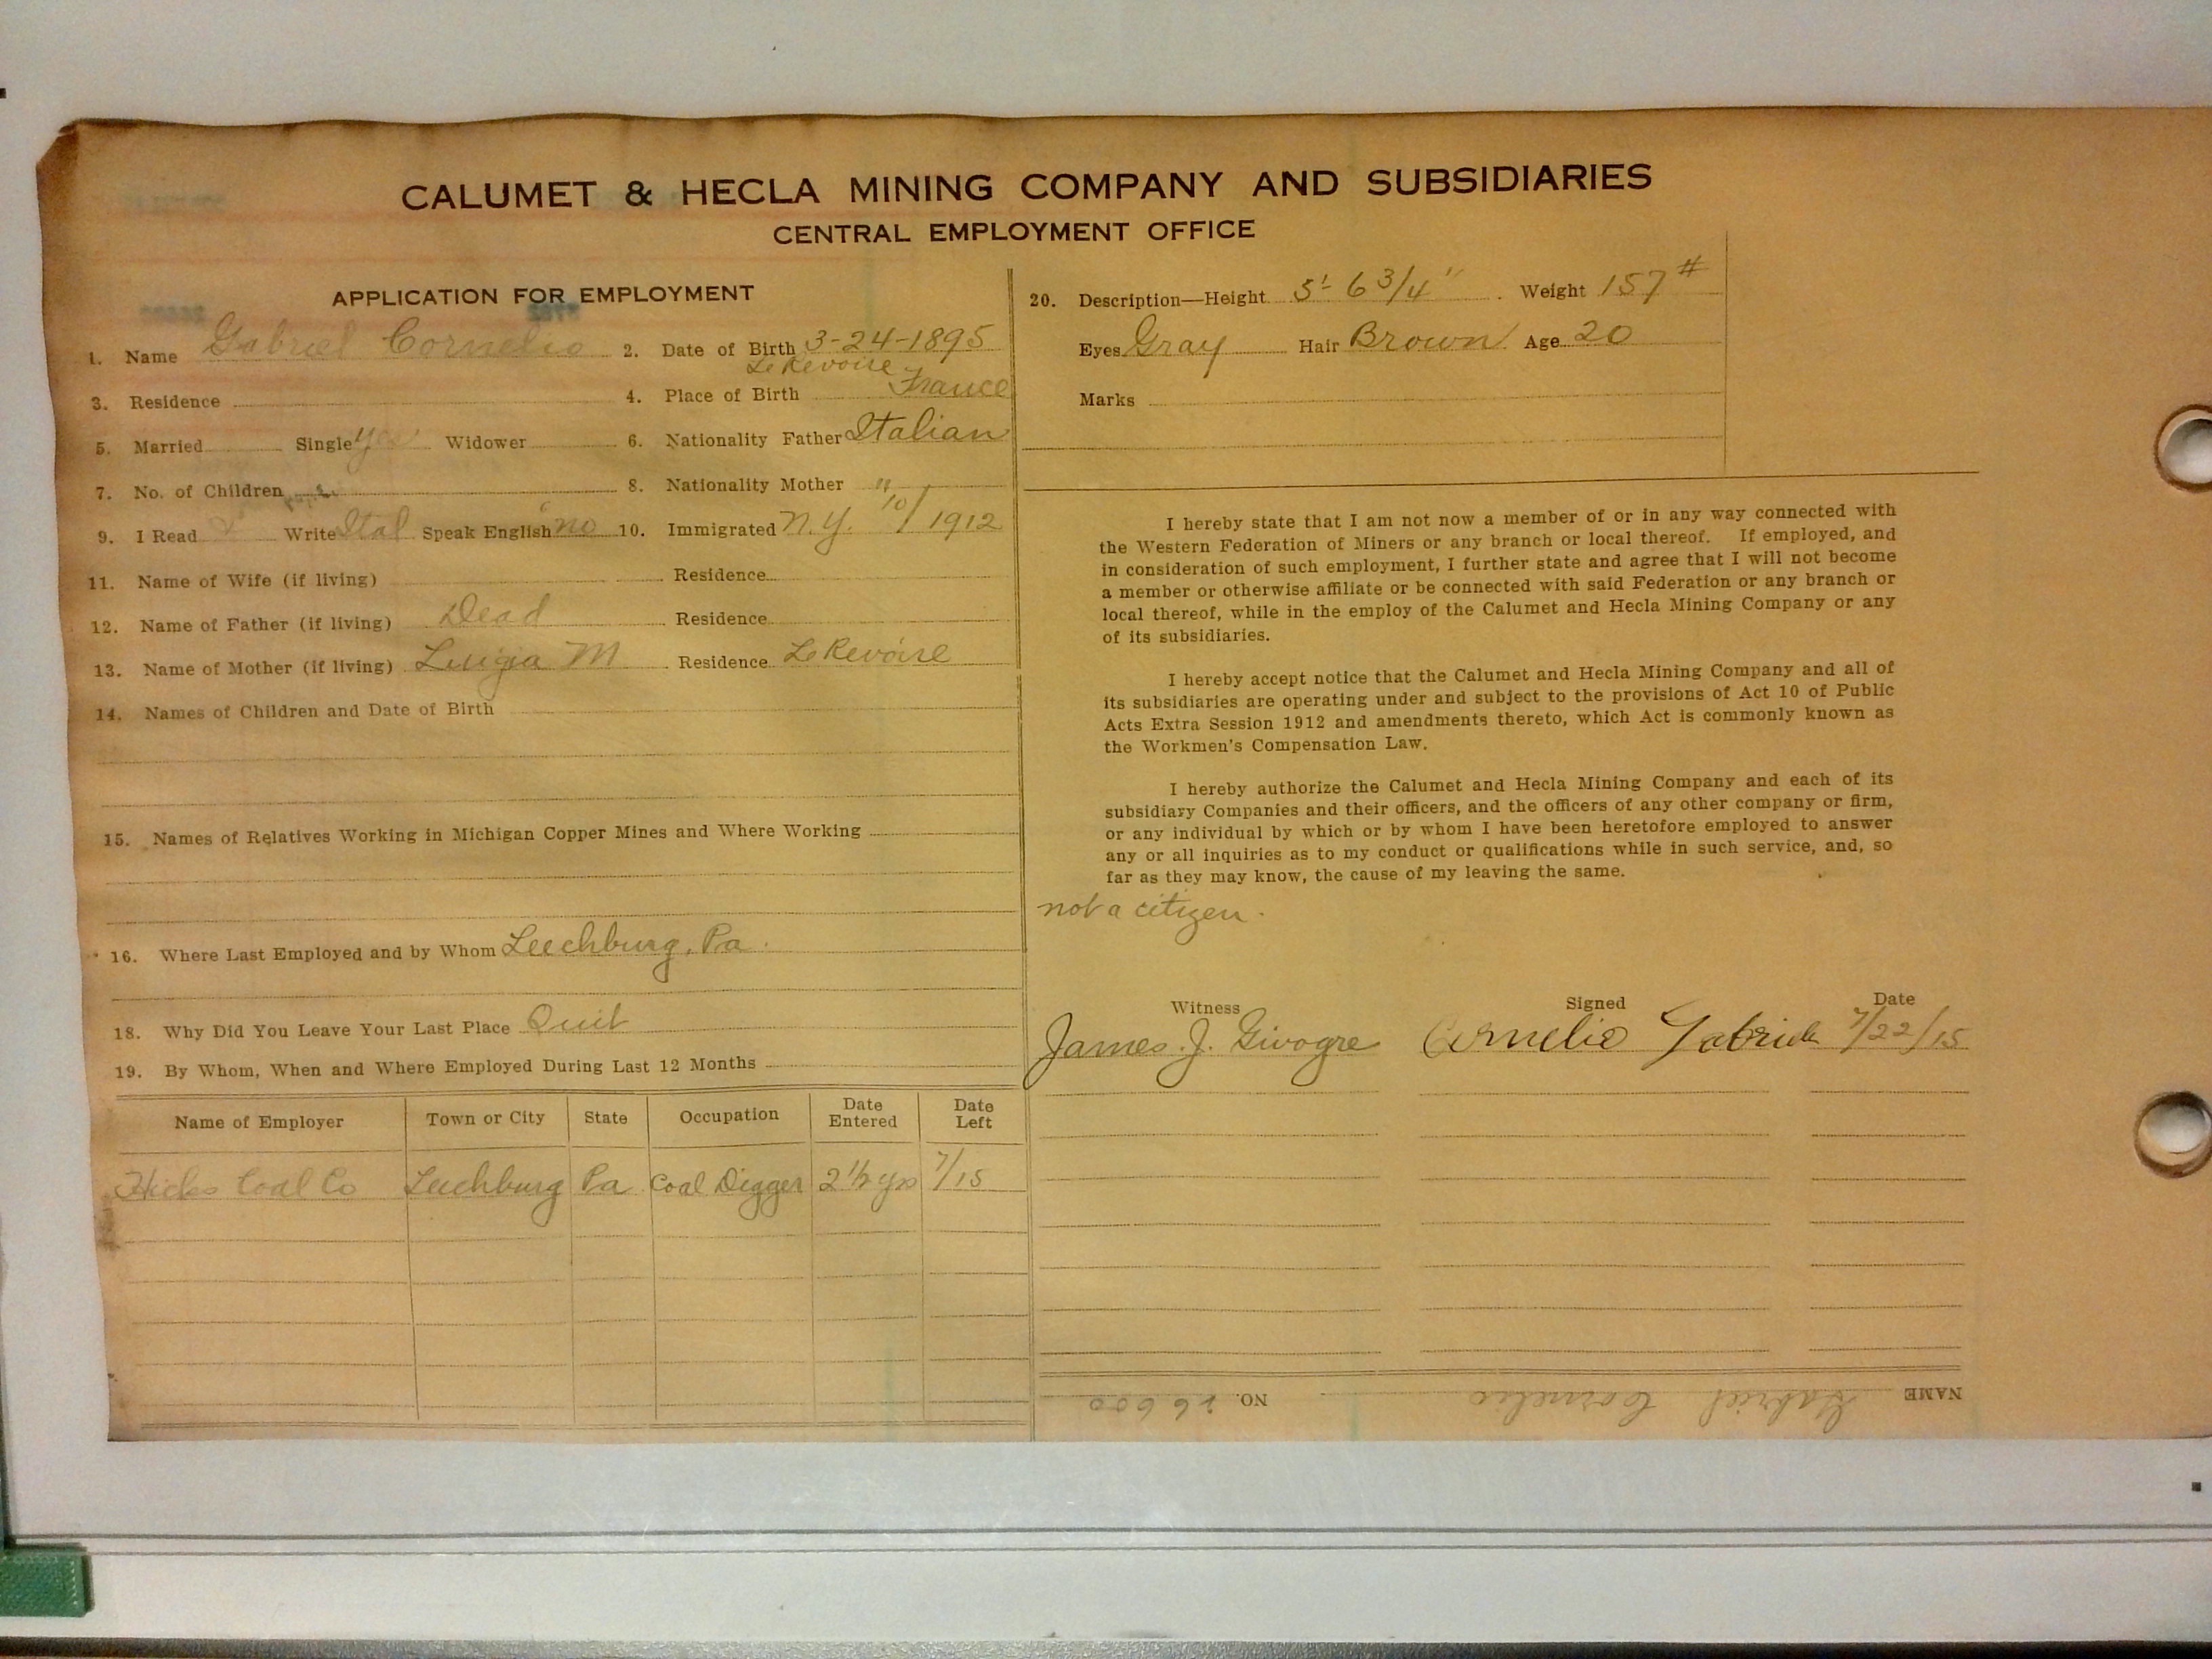 CALUMET & HECLA MINING COMPANY AND SUBSIDIARIES
CENTRAL EMPLOYMENT OFFICE
APPLICATION FOR EMPLOYMENT
1. Name Gabriel Cornelio 2. Date of Birth 3-24-1895
Le Revoire
3. Residence 4. Place of Birth France
5. Married Single yes Widower 6. Nationality Father Italian
7. No. of Children 8. Nationality Mother "
9. I Read & Write Ital Speak English no 10. Immigrated N.Y. 10/1912
11. Name of Wife (if living) Residence
12. Name of Father (if living) Dead Residence
13. Name of Mother (if living) Luigia M Residence Le Revoire
14. Names of Children and Date of Birth
15. Names of Relatives Working in Michigan Copper Mines and Where Working
16. Where Last Employed and by Whom Leechburg, Pa.
18. Why Did You Leave Your Last Place Quit
19. By Whom, When and Where Employed During Last 12 Months
Name of Employer Town or City State Occupation Date Entered Date Left
Hicks Coal Co Leechburg Pa Coal Digger 2 1/2 yrs 7/15
20. Description—Height 5'- 6 3/4" Weight 157 #
Eyes Gray Hair Brown Age 20
Marks
I hereby state that I am not now a member of or in any way connected with
the Western Federation of Miners or any branch or local thereof. If employed, and
in consideration of such employment, I further state and agree that I will not become
a member or otherwise affiliate or be connected with said Federation or any branch or
local thereof, while in the employ of the Calumet and Hecla Mining Company or any
of its subsidiaries.
I hereby accept notice that the Calumet and Hecla Mining Company and all of
its subsidiaries are operating under and subject to the provisions of Act 10 of Public
Acts Extra Session 1912 and amendments thereto, which Act is commonly known as
the Workmen's Compensation Law.
I hereby authorize the Calumet and Hecla Mining Company and each of its
subsidiary Companies and their officers, and the officers of any other company or firm,
or any individual by which or by whom I have been heretofore employed to answer
any or all inquiries as to my conduct or qualifications while in such service, and, so
far as they may know, the cause of my leaving the same.
not a citizen.
Witness Signed Date
James J. Givogre Cornelio Gabriele 7/22/15
NAME Gabriel Cornelio NO. 26600